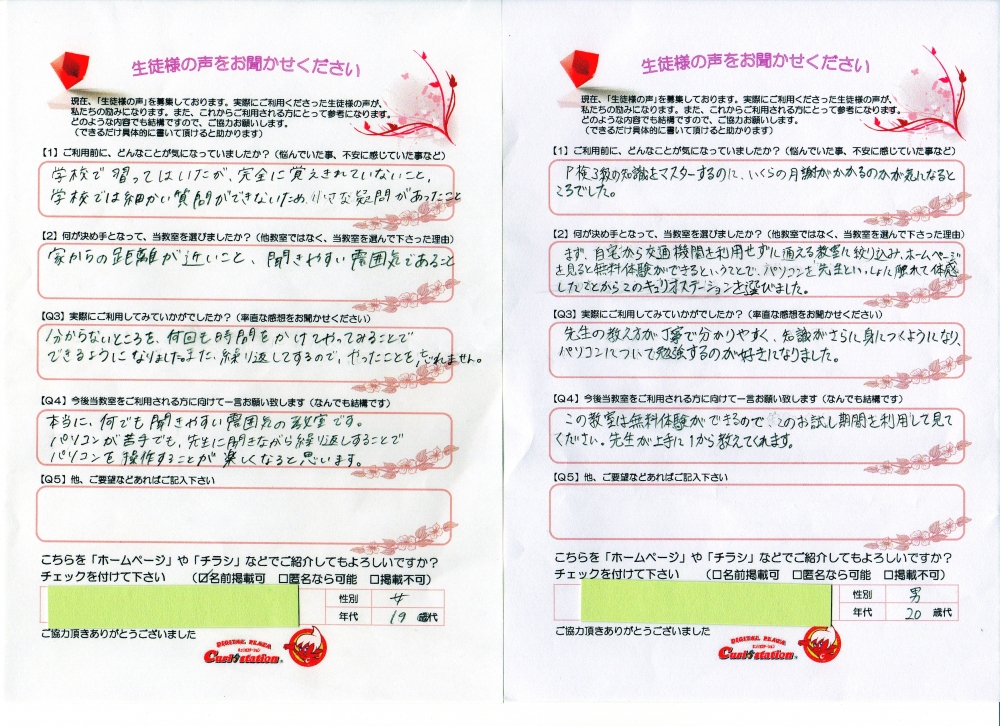 生徒様の声をお聞かせください
現在、「生徒様の声」を募集しております。実際にご利用くださった生徒様の声が、
私たちの励みになります。また、これからご利用される方にとって参考になります。
どのような内容でも結構ですので、ご協力お願いします。
（できるだけ具体的に書いて頂けると助かります）
【1】ご利用前に、どんなことが気になっていましたか？（悩んでいた事、不安に感じていた事など）
学校で習ってはいたが、完全に覚えきれていないこと。
学校では細かい質問ができないため、小さな疑問があったこと
【2】何が決め手となって、当教室を選びましたか？（他教室ではなく、当教室を選んで下さった理由）
家からの距離が近いこと、聞きやすい雰囲気であること
【Q3】実際にご利用してみていかがでしたか？（率直な感想をお聞かせください）
分からないところを、何回も時間をかけてやってみることで
できるようになりました。また、繰り返しするので、やったことを忘れません。
【Q4】今後当教室をご利用される方に向けて一言お願い致します（なんでも結構です）
本当に、何でも聞きやすい雰囲気の教室です。
パソコンが苦手でも、先生に聞きながら繰り返しすることで
パソコンを操作することが楽しくなると思います。
【Q5】他、ご要望などあればご記入下さい
こちらを「ホームページ」や「チラシ」などでご紹介してもよろしいですか？
チェックを付けて下さい （☑名前掲載可 □匿名なら可能 □掲載不可）
性別 女
年代 19 歳代
ご協力頂きありがとうございました
DIGITAL PLAZA
Curio station
生徒様の声をお聞かせください
現在、「生徒様の声」を募集しております。実際にご利用くださった生徒様の声が、
私たちの励みになります。また、これからご利用される方にとって参考になります。
どのような内容でも結構ですので、ご協力お願いします。
（できるだけ具体的に書いて頂けると助かります）
【1】ご利用前に、どんなことが気になっていましたか？（悩んでいた事、不安に感じていた事など）
P検3級の知識をマスターするのに、いくらの月謝がかかるのかが気になると
ころでした。
【2】何が決め手となって、当教室を選びましたか？（他教室ではなく、当教室を選んで下さった理由）
まず、自宅から交通機関を利用せずに通える教室に絞り込み、ホームページ
を見ると無料体験ができるということで、パソコンを先生といっしょに触れて体感
したことからこのキュリオステーションを選びました。
【Q3】実際にご利用してみていかがでしたか？（率直な感想をお聞かせください）
先生の教え方が丁寧で分かりやすく、知識がさらに身につくようになり、
パソコンについて勉強するのが好きになりました。
【Q4】今後当教室をご利用される方に向けて一言お願い致します（なんでも結構です）
この教室は無料体験ができるのでこのお試し期間を利用して見て
ください。先生が上手に1から教えてくれます。
【Q5】他、ご要望などあればご記入下さい
こちらを「ホームページ」や「チラシ」などでご紹介してもよろしいですか？
チェックを付けて下さい （□名前掲載可 □匿名なら可能 □掲載不可）
性別 男
年代 20 歳代
ご協力頂きありがとうございました
DIGITAL PLAZA
Curio station